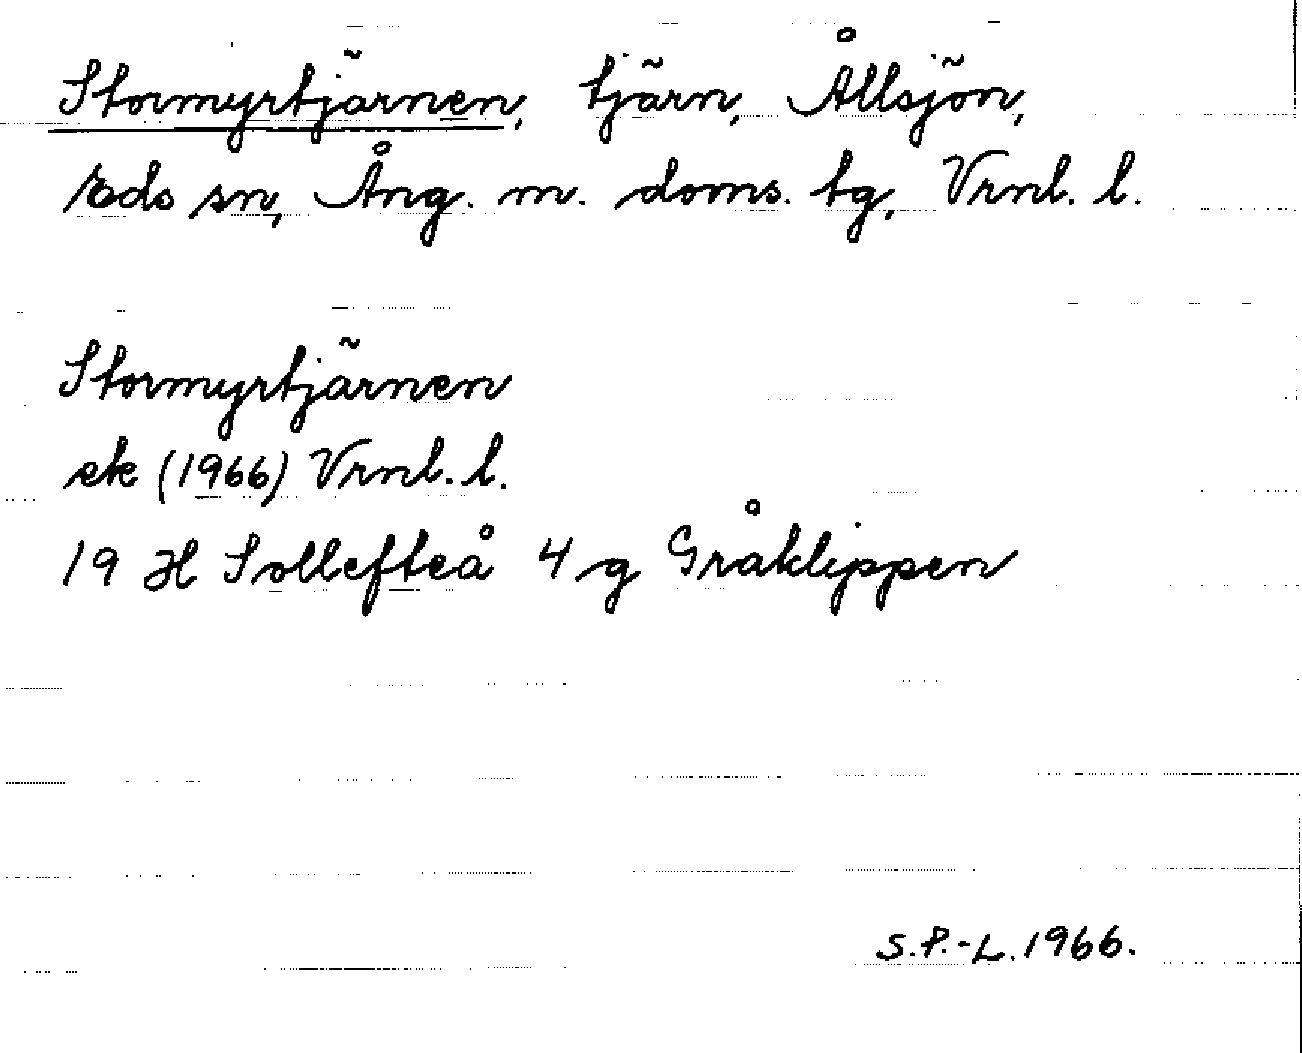 Stormyrtjärnen, tjärn, Ållsjön,
Eds sn, Ång. m. doms. tg, Vrnl. l.
Stormyrtjärnen
ek (1966) Vrnl. l.
19 H Sollefteå 4 g Gråklippen
S.P.-L. 1966.